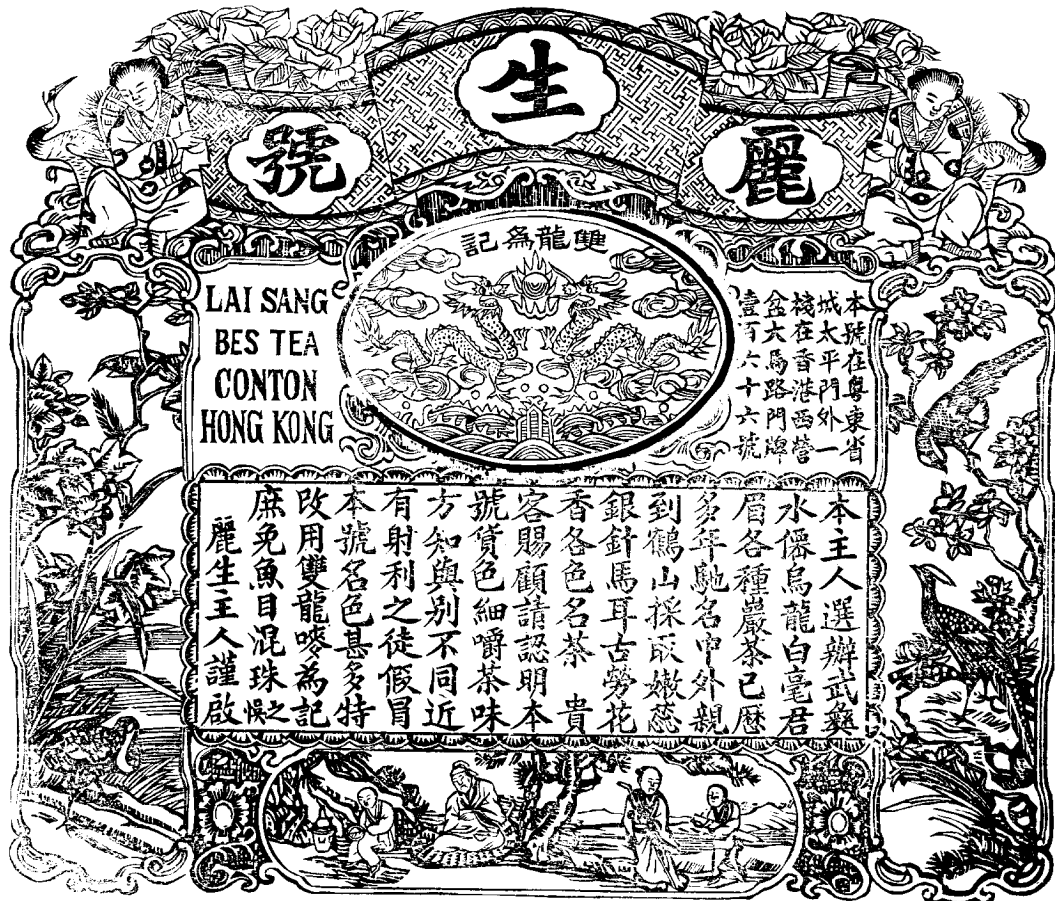 麗生號
雙龍爲記
LAI SANG
BES TEA
CONTON
HONG KONG
本號在粵東省
城太平門外一
棧在香港西營
盆大馬路門牌
壹百六十六號
本主人選辦武彝
水僊烏龍白毫君
眉各種巖茶已歷
多年馳名中外親
到鶴山採取嫩蕊
銀針馬耳古勞花
香各色名茶 貴
客賜顧請認明本
號貨色細嚼茶味
方知與別不同近
有射利之徒假冒
本號名色甚多特
改用雙龍嘜為記
庶免魚目混珠之悞
麗生主人謹啟